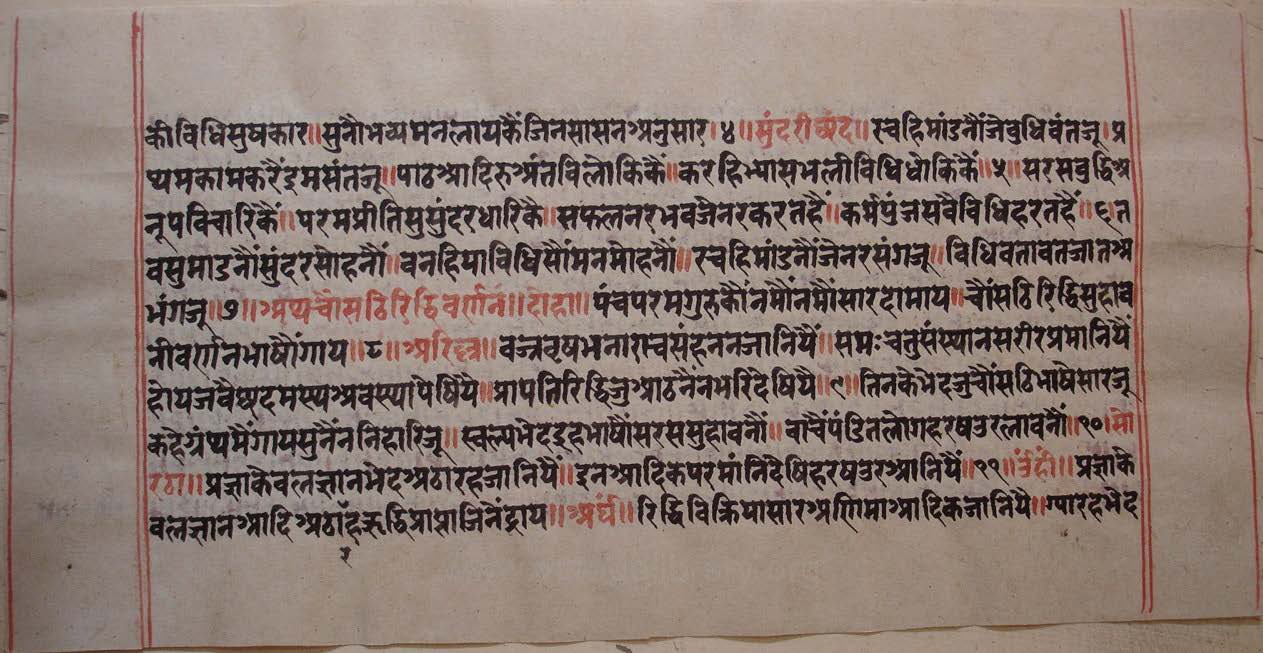 की विधि सुषकार॥ सुनौ भव्य मन लाय कैं जिनसासन अनुसार। ४॥ सुंदरी छंद॥ रचहि मांडनौं जे बुधिवंत जू। प्र
थम काम करैं इम संत जू॥ पाठ आदि रु अंत विलोकि कैं॥ करहि भ्यास भली विधि धोकि कैं॥ ५॥ सरस बुद्धि अ
नूप विचारि कैं॥ परम प्रीति सु सुंदर धारि कै॥ सफल नरभव जे नर करत हैं॥ कर्म पुंज सवै विधि हरत हैं॥ ६॥ त
वसु मांडनौं सुंदर सोहनौं॥ वनहि या विधि सौं मन मोहनौं॥ रचहि मांडनौं जे नर संग जू॥ विधि वतावत जात अ
भंग जू॥ ७॥ अथ चौसठि रिद्धि वर्नन॥ दोहा॥ पंच परम गुरु कौं नमौं नमौं सारदा माय॥ चौंसठि रिद्धि सुहाव
नी वर्नन भाषौं गाय॥ ८॥ अरिल्ल॥ वज्र वृषभ नाराच संहनन जानियैं॥ सम चतु संस्थान सरीर प्रमानियैं
होय जवै छदमस्थ अवस्था पेषियै॥ प्रापति रिद्धि जु आठ नैंन भरि देषियै॥ ९॥ तिनके भेद जु चौंसठि भाषे सार जू
कहे ग्रंथ मैं गाय सु नैंन निहारि जू॥ स्वल्प भेद इह भाषौं सरस सुहावनौं॥ वाचैं पंडित लोग हरष उर लावनौं॥ १०॥ सो
रठा॥ प्रज्ञा केवल ज्ञान भेद अठारह जानियैं॥ इन आदिके परमांन देषि हरष उर आनियैं॥ ११॥ उंह्री॥ प्रज्ञा के
वल ज्ञान आदि अठारह रुद्धि प्राप्ताजिनेंद्राय॥ अर्घं॥ रिद्धि विक्रिया सार अणिमा आदिक जानियै॥ ग्यारह भेद